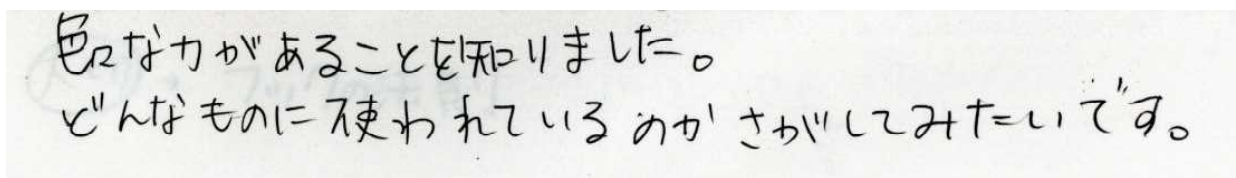 色々な力があることを知りました。
どんなものに使われているのかさがしてみたいです。